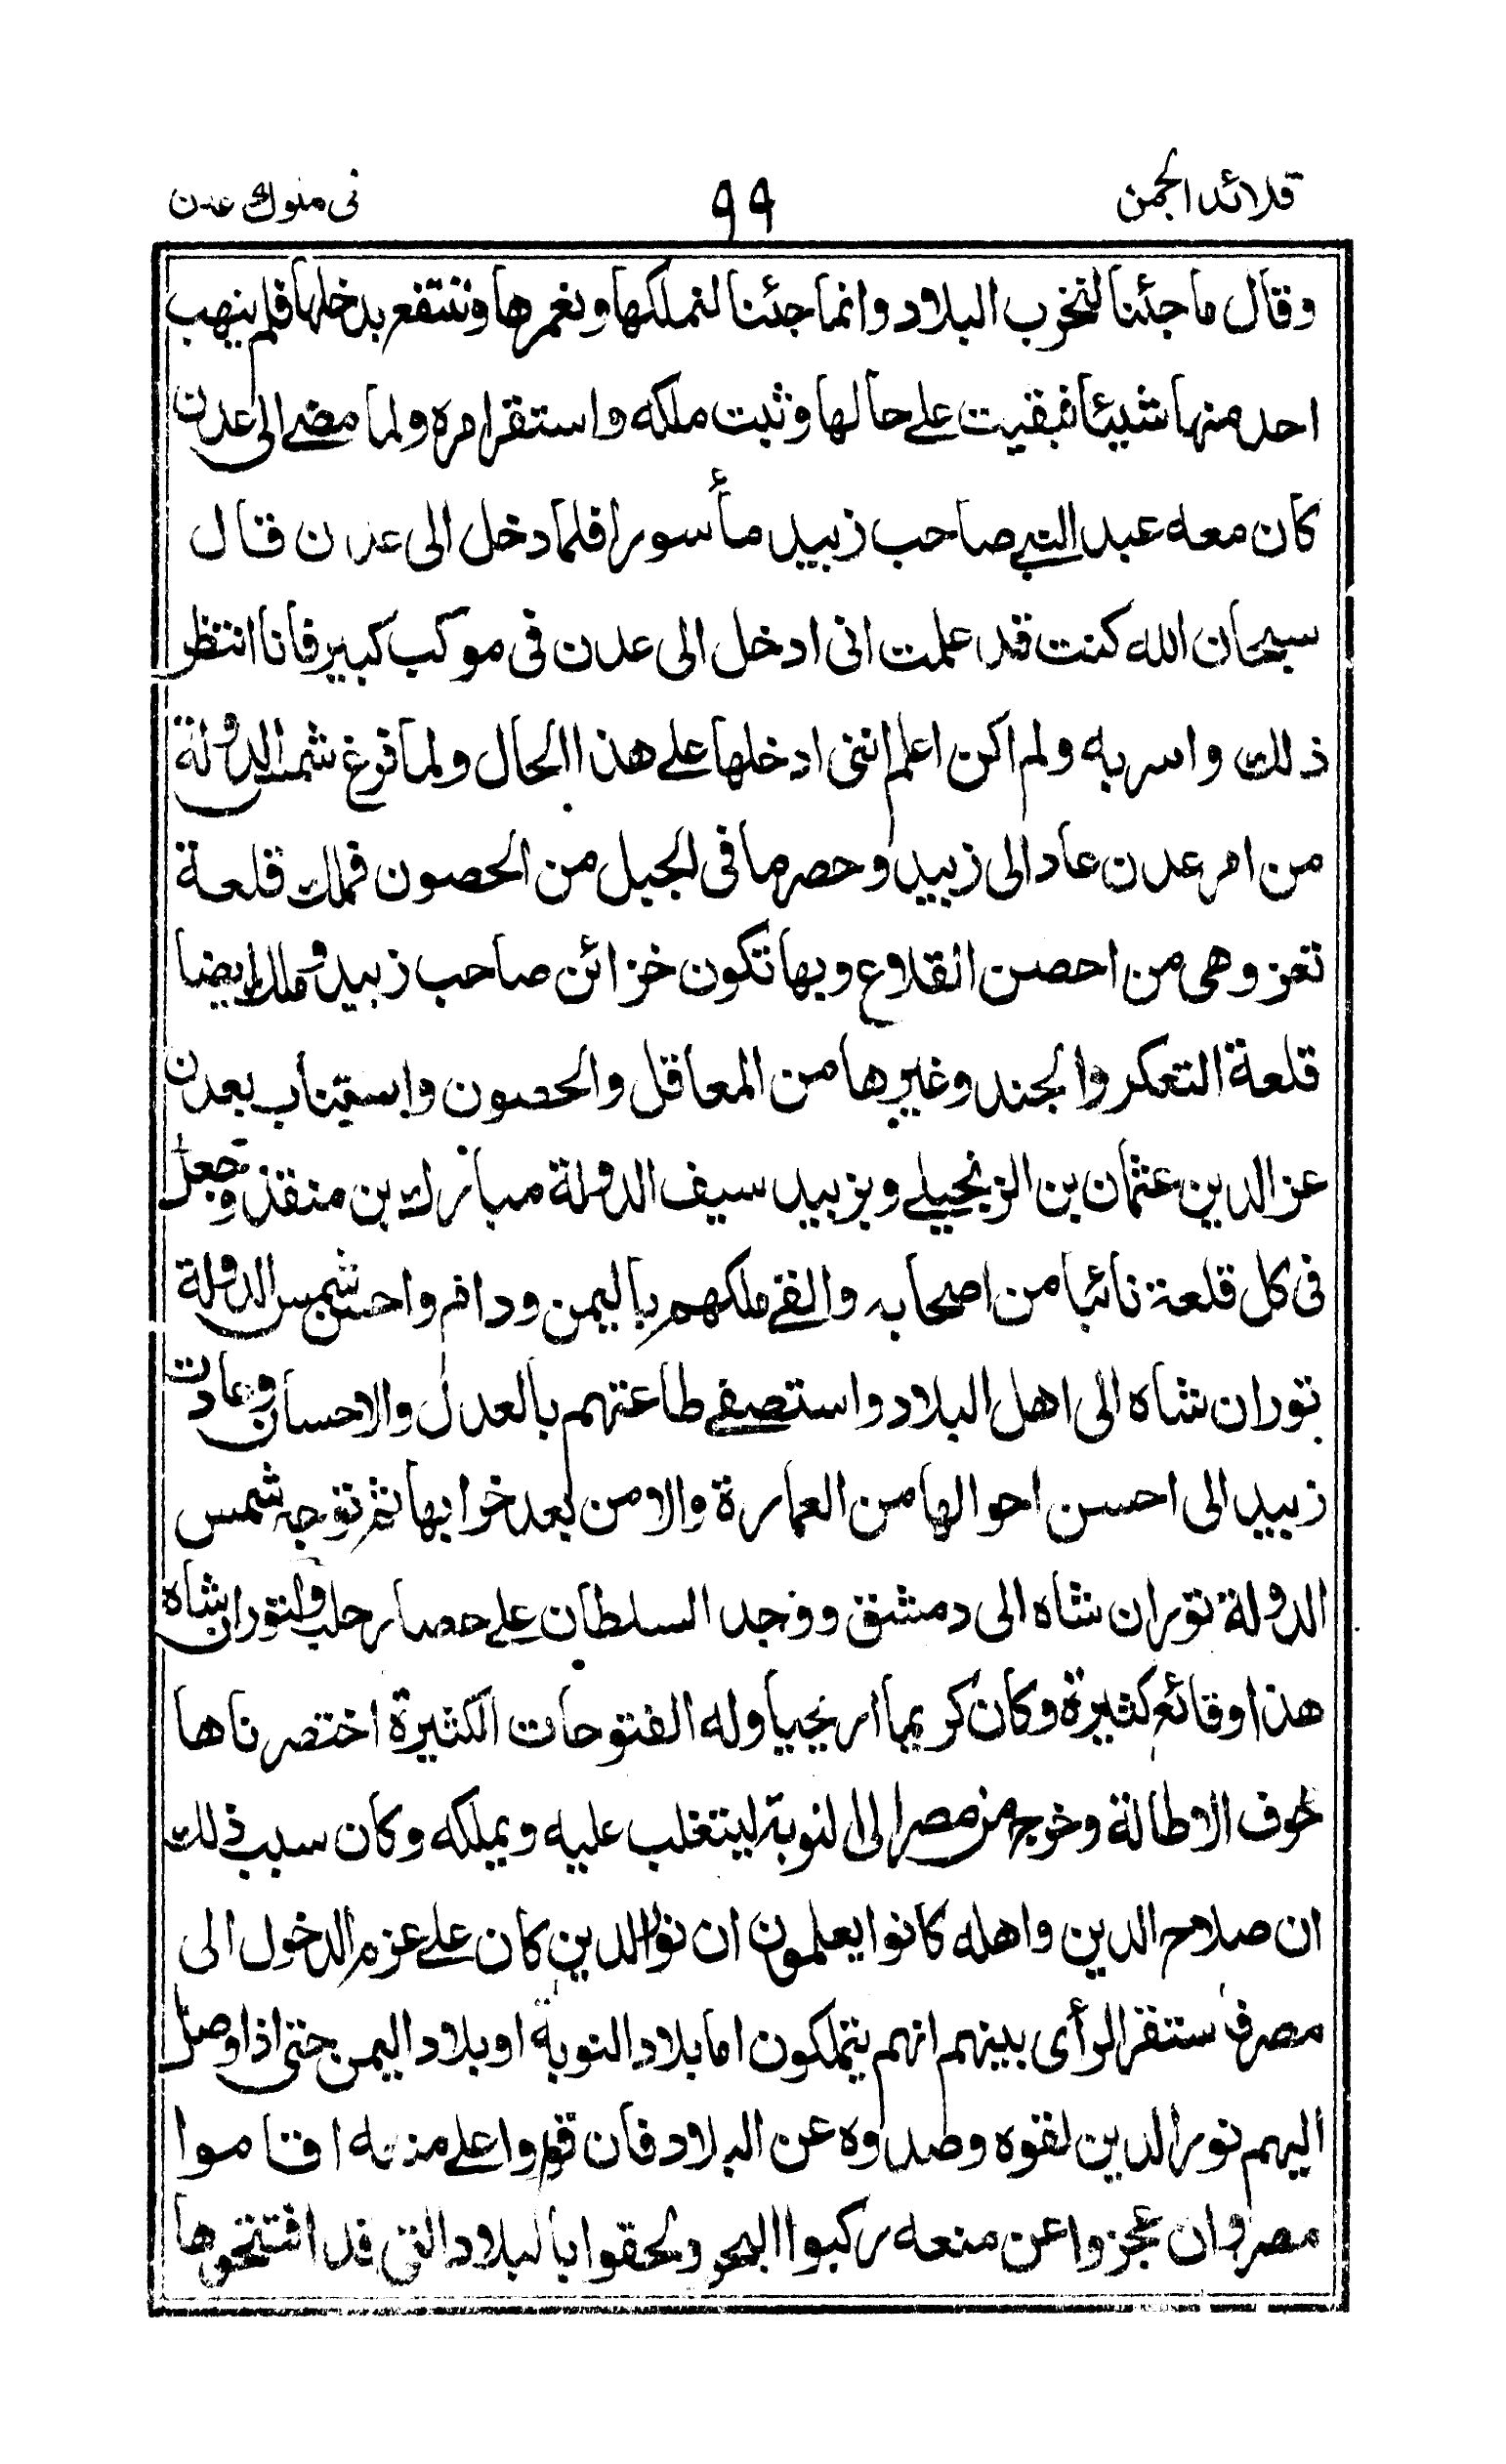 قلائد الجمن ٩٩ فى ملوك عدن
وقال ما جئنا لنخرب البلاد وانما جئنا لنملكها ونعمرها وننتفع بدخلها فلم ينهب
احد منها شيئا فبقيت على حالها وثبت ملكه واستقر امره ولما مضى الى عدن
كان معه عبد النبى صاحب زبيد مأسورا فلما دخل الى عدن قال
سبحان الله كنت قد علمت انى ادخل الى عدن فى موكب كبير فانا انتظر
ذلك واسر به ولم اكن اعلم اننى ادخلها على هذا الحال ولما فرغ شمس الدولة
من امر عدن عاد الى زبيد وحصر ما فى الجبل من الحصون فملك قلعة
تعز وهى من احصن القلاع وبها تكون خزائن صاحب زبيد وملك ايضا
قلعة التعكر والجند وغيرها من المعاقل والحصون واستناب بعدن
عز الدين عثمان بن الزنجيلى وبزبيد سيف الدولة مبارك بن منقذ وجعل
فى كل قلعة نائبا من اصحابه والقى ملكهم باليمن ودام واحسن شمس الدولة
توران شاه الى اهل البلاد واستصفى طاعتهم بالعدل والاحسان وعادت
زبيد الى احسن احوالها من العمارة والامن بعد خرابها ثم توجه شمس
الدولة توران شاه الى دمشق ووجد السلطان على حصار حلب ولتوران شاه
هذا وقائع كثيرة وكان كريما اريحيا وله الفتوحات الكثيرة اختصرناها
خوف الاطالة وخرج من مصر الى النوبة ليتغلب عليه ويملكه وكان سبب ذلك
ان صلاح الدين واهله كانوا يعلمون ان نور الدين كان على عزم الدخول الى
مصر فاستقر الرأى بينهم انهم يتملكون اما بلاد النوبة او بلاد اليمن حتى اذا وصل
اليهم نور الدين لقوه وصدوه عن البلاد فان قووا على منعه اقاموا
مصر وان عجزوا عن منعه ركبوا البحر ولحقوا بالبلاد التى قد افتتحوها